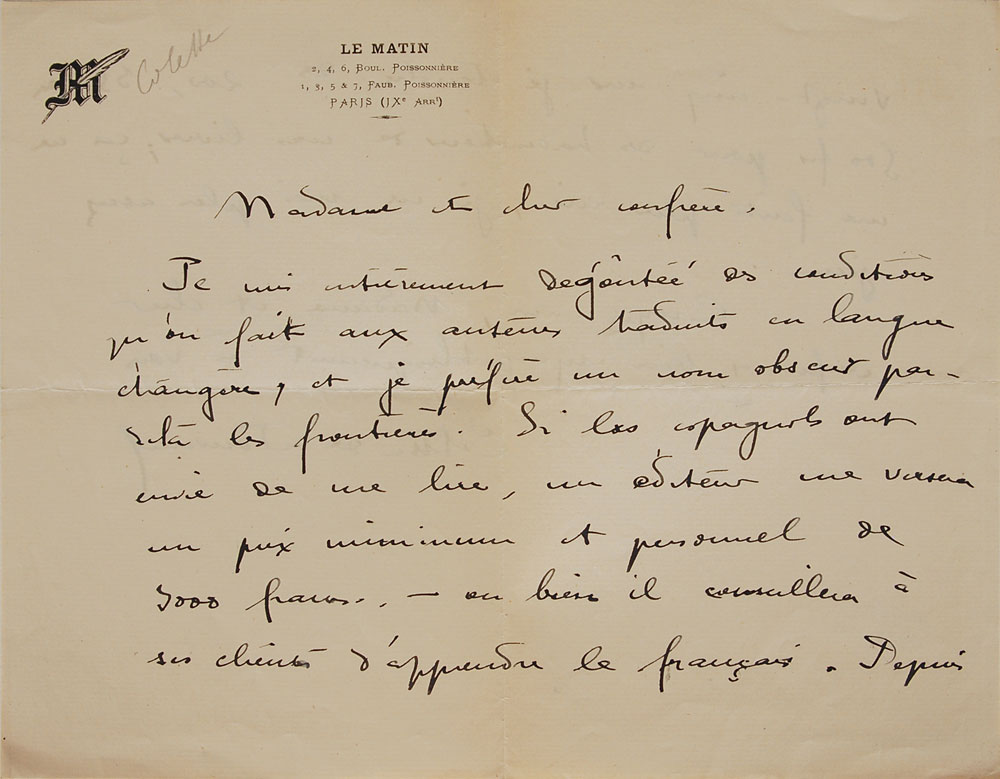 Colette
LE MATIN
2, 4, 6, Boul. Poissonnière
1, 3, 5 & 7, Faub. Poissonnière
PARIS (IXe Arrt)
Madame et cher confrère.
Je suis entièrement dégoûtée des conditions
qu'on fait aux auteurs traduits en langue
étrangère, et je préfère un nom obscur par-
delà les frontières. Si les espagnols ont
envie de me lire, un éditeur me versera
un prix minimum et personnel de
3000 francs., — ou bien il conseillera à
ses clients d'apprendre le français. Depuis